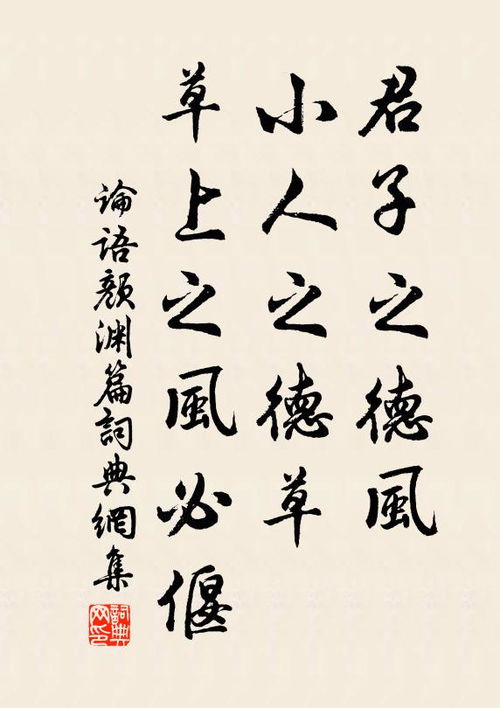 君子之德風
小人之德草
草上之風必偃
論語顏淵篇詞典網集
詞典
网印